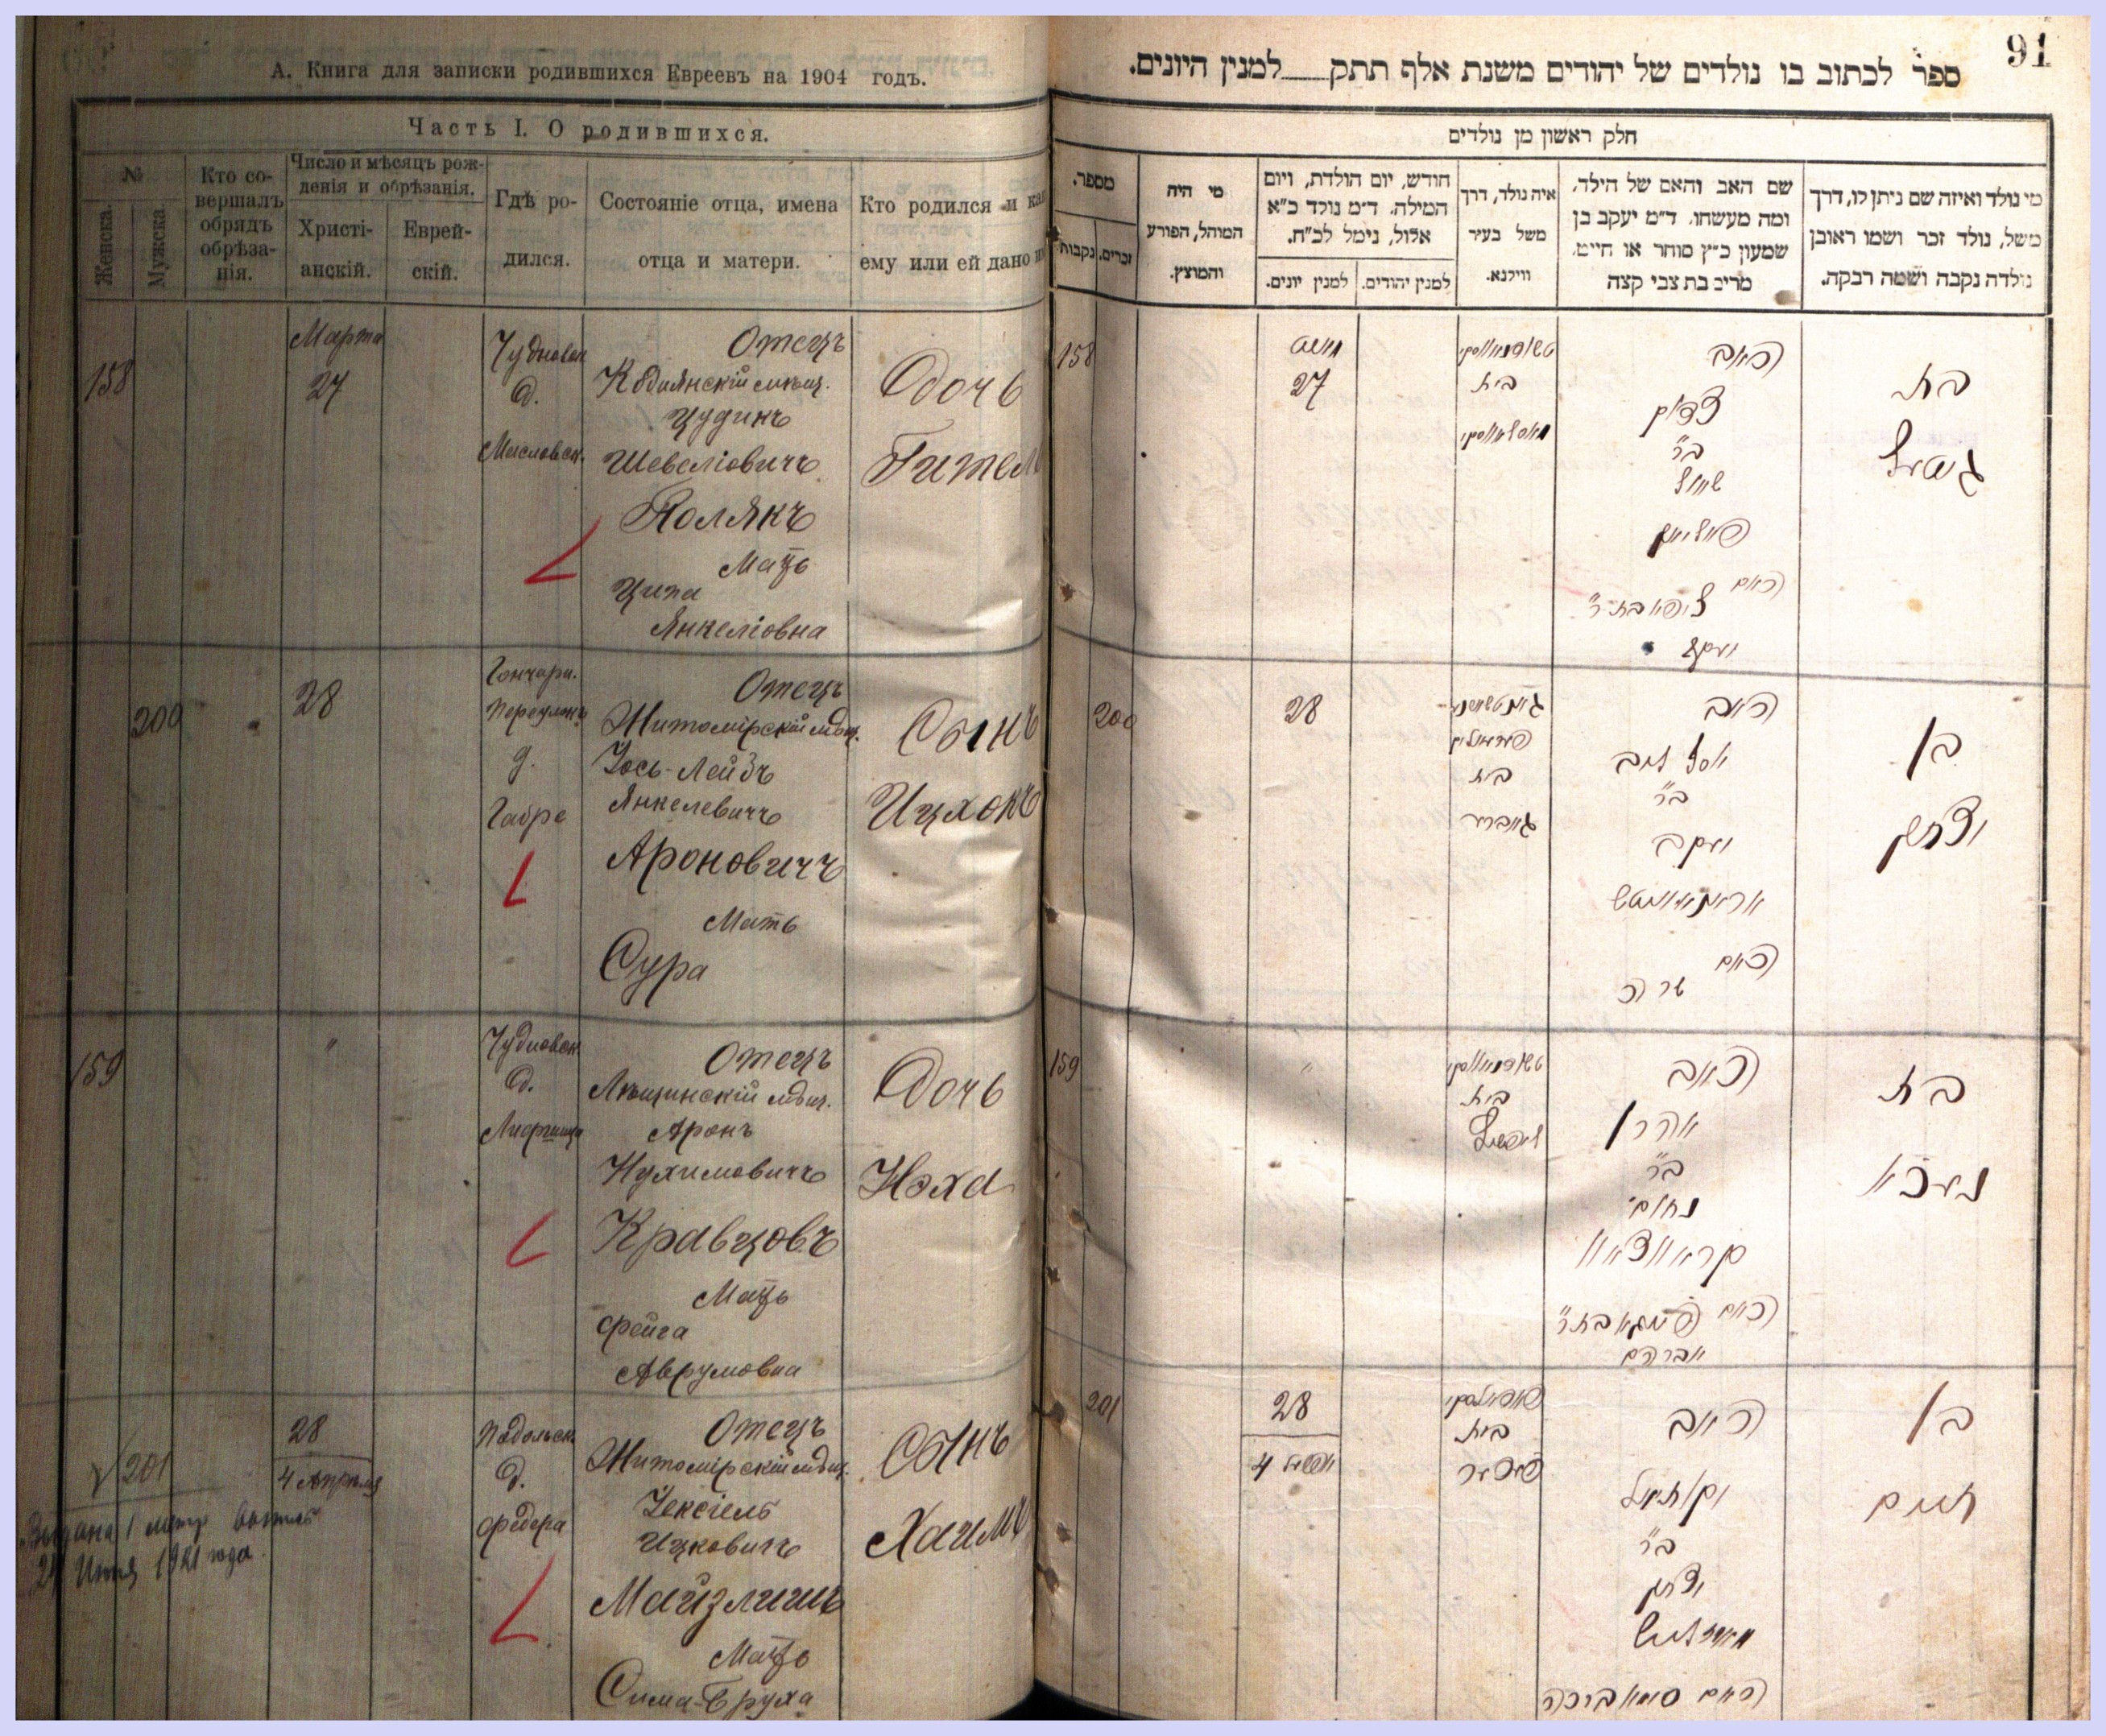 А. Книга для записки родившихся Евреевъ на 1904 годъ.
Часть I. О родившихся.
№
Женска.
Мужска.
Кто со-
вершалъ
обрядъ
обрѣза-
нія.
Число и мѣсяцъ рож-
денія и обрѣзанія.
Христі-
анскій.
Еврей-
скій.
Гдѣ ро-
дился.
Состояніе отца, имена
отца и матери.
Кто родился и как
ему или ей дано им
158
Марта
27
Чудновск
д.
Масловск.
Отецъ
Кодиянскій мѣщ.
Цудикъ
Шевеліовичъ
Полякъ
Мать
Ципа
Янкеліовна
Дочь
Гитель
200
28
Гончарн.
Переулокъ
д.
Гавре
Отецъ
Житомірскій мѣщ.
Іось-Лейбъ
Янкелевичъ
Ароновичъ
Мать
Сура
Сынъ
Ицхокъ
159
"
Чудновск
д.
Лифшица
Отецъ
мѣщ.
Аронъ
Нухимовичъ
Кравцовъ
Мать
Фейга
Аврумовна
Дочь
Нэха
201
28
4 Апрѣля
Подольск
д.
Федера
Отецъ
Житомірскій мѣщ.
Іексіель
Ицковичъ
Майзлишъ
Мать
Сима-Бруха
Сынъ
Хаимъ
Выдана 1 метр выпись
Июня 1921 года.
91
ספר לכתוב בו נולדים של יהודים משנת אלף תתק__למנין היונים.
חלק ראשון מן נולדים
מספר.
נקבות
זכרים.
מי היה
המוהל, הפורע
והמוצץ.
חודש, יום הולדת, ויום
המילה. ד״מ נולד כ״א
אלול, נימל לכ״ח.
למנין יונים.
למנין יהודים.
איה נולד, דרך
משל בעיר
ווילנא.
שם האב והאם של הילד,
ומה מעשהו. ד״מ יעקב בן
שמעון כ״ץ סוחר או חייט,
מרים בת צבי קצה
מי נולד ואיזה שם ניתן לו, דרך
משל, נולד זכר ושמו ראובן
נולדה נקבה ושמה רבקה.
158
27
בית
האב
צדוק
ב״ר
פוליאק
האם
ציפא בת ר״
יעקב
בת
גיטעל
200
28
בית
האב
יוסל לייב
ב״ר
יעקב
האם
שרה
בן
יצחק
159
"
בית
האב
אהרן
ב״ר
נחום
קראווצאוו
האם פייגא בת ר״
אברהם
בת
נעכא
201
28
4 אפריל
בית
פעדער
האב
יקותיאל
ב״ר
יצחק
האם סימא ברכה
בן
חיים